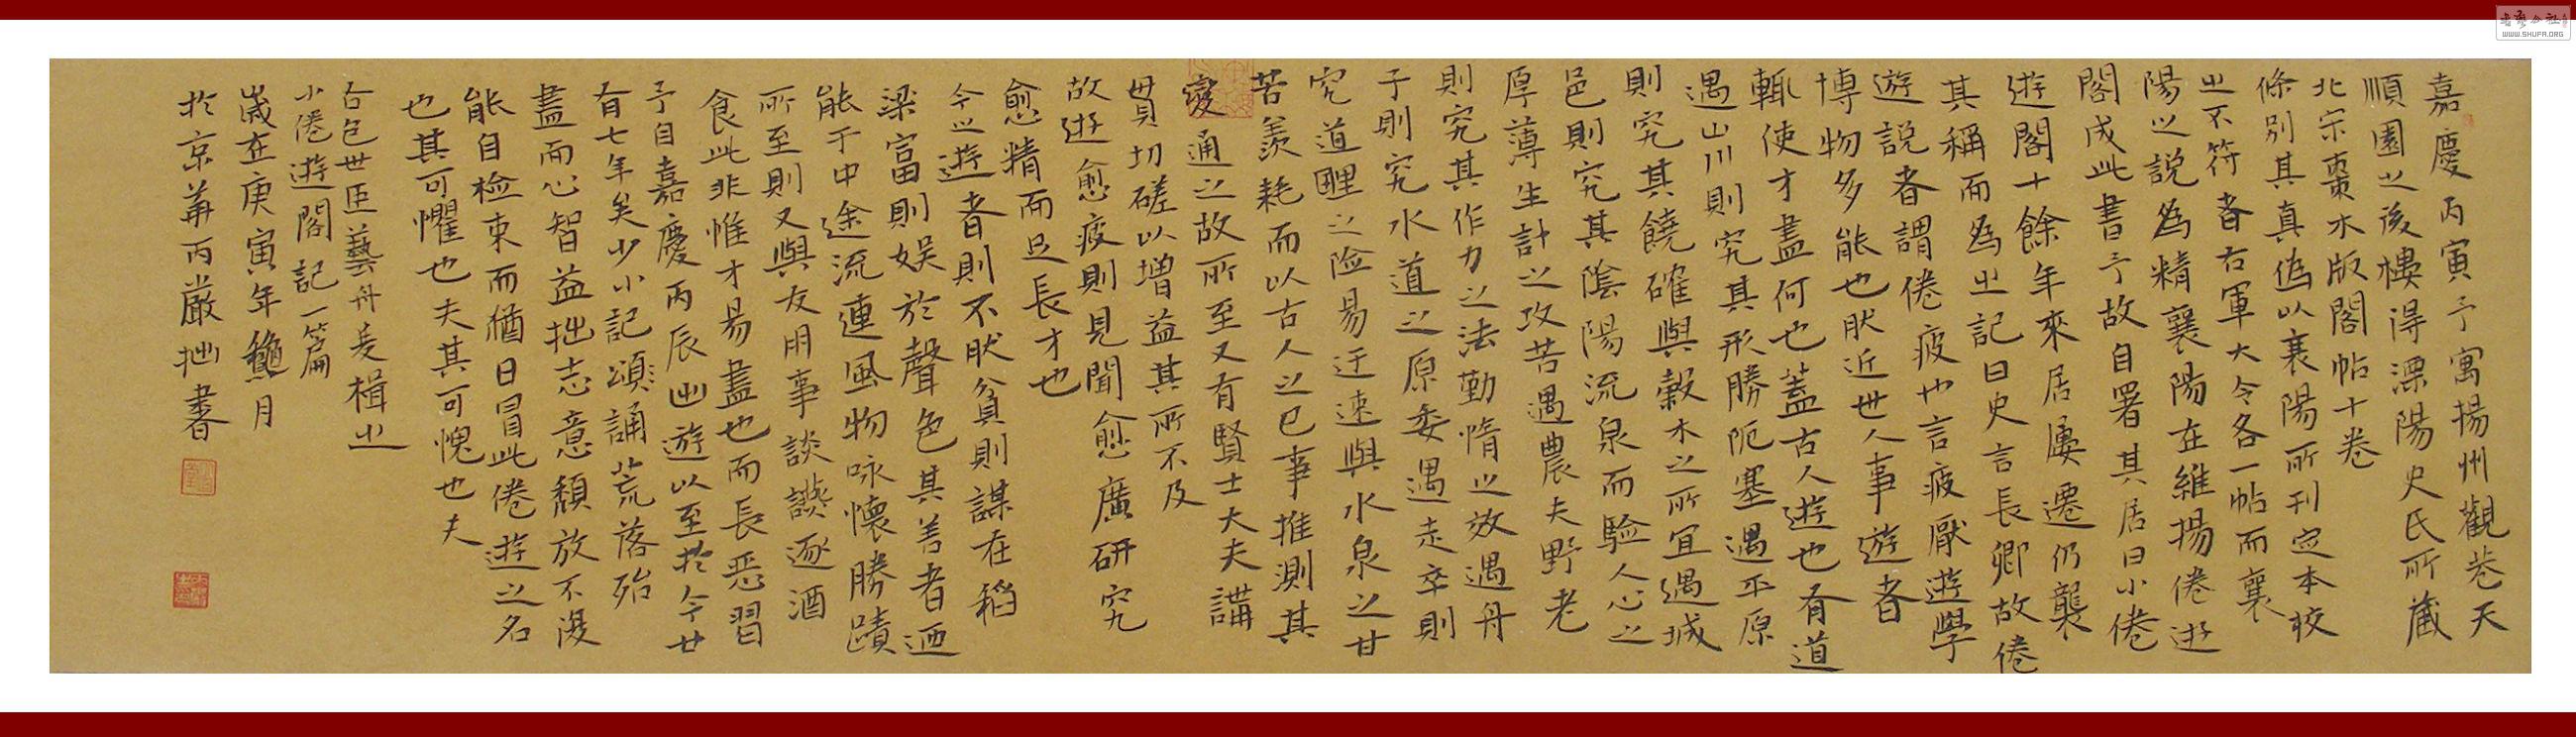 嘉慶丙寅予寓揚州觀巷天
順園之後樓得溧陽史氏所藏
北宗棗木版閣帖十卷
條別其真偽以襄陽所刊定本校
之不符者右軍大令各一帖而襄
陽之説為精襄陽在維揚倦遊
閣成此書予故自署其居曰小倦
遊閣十餘年來居屢遷仍襲
其稱而為之記曰史言長卿故倦
遊説者謂倦疲也言疲厭遊學
博物多能也肰近世人事遊者
輒使才盡何也蓋古人遊也有道
遇山川則究其形勝阨塞遇平原
則究其饒確與穀木之所宜遇城
邑則究其陰陽流泉而驗人心之
厚薄生計之攻苦遇農夫野老
則究其作力之法勤惰之效遇舟
子則究水道之原委遇走卒則
究道里之险易迂速與水泉之甘
苦羨耗而以古人之已事推測其
變通之故所至又有賢士大夫講
貫切磋以增益其所不及
故遊愈疲則見聞愈廣研究
愈精而足長才也
今之遊者則不肰貧則謀在稻
梁富則娱於聲色其善者迺
能于中途流連風物咏懷勝蹟
所至則又與友朋事談讌逐酒
食此非惟才易盡也而長惡習
予自嘉慶丙辰出遊以至於今廿
有七年矣少小記頌誦荒落殆
盡而心智益拙志意頹放不復
能自检束而猶日冒此倦遊之名
也其可懼也夫其可愧也夫
右包世臣藝舟雙楫之
小倦遊閣記一篇
嵗在庚寅年龝月
於京華丙嚴拙書
書法公社
WWW.SHUFA.ORG